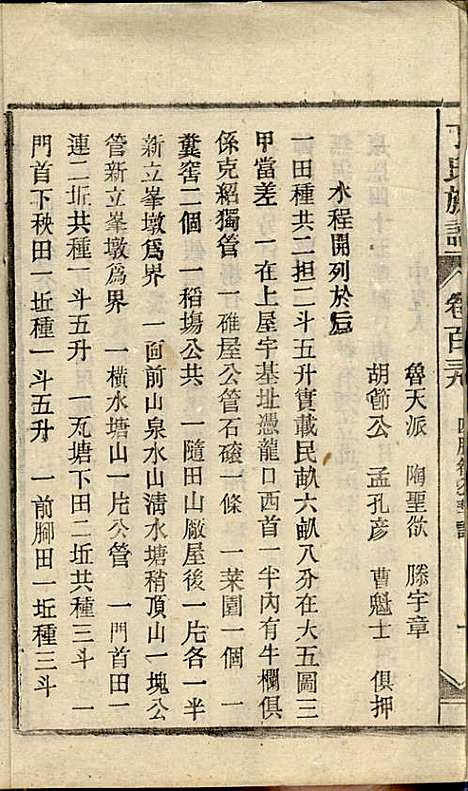 丁氏族譜
卷百
魯天派　陶聖欲　滕宇章
胡節公　孟孔彥　曹魁士　俱押
水程開列於后
一田種共二担二斗五升實載民畝六畝八分在大五圖三
甲當差　一在上屋宇基址憑龍口西首一半內有牛欄俱
係克紹獨管　一碓屋公管石磙一條　一菜園一個　一
糞窖二個　一稻場公共　一隨田山廠屋後一片各一半
新立峯墩爲界　一面前山泉水山淸水塘稍頂山一塊公
管新立峯墩爲界　一橫水塘山一片公管　一門首田一
連二坵共種一斗五升　一瓦塘下田二坵共種三斗　一
門首下秧田一坵種一斗五升　一前脚田一坵種三斗